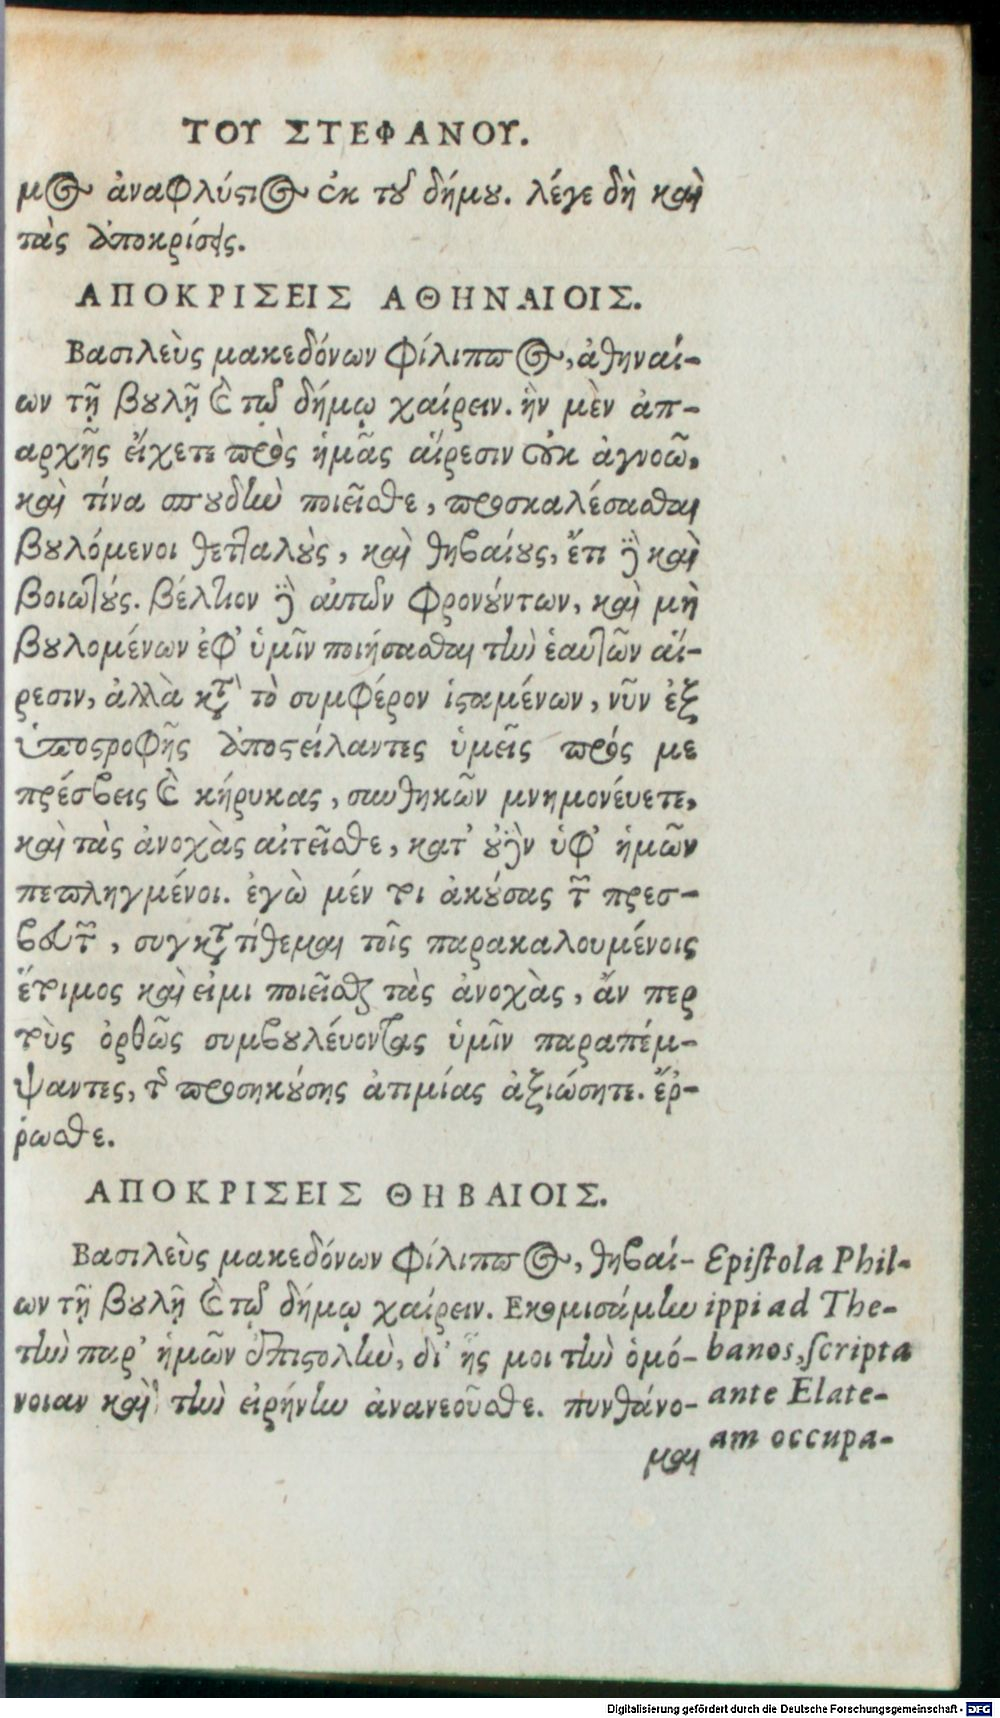 ΤΟΥ ΣΤΕΦΑΝΟΥ.
μος ἀναφλύστιος ἐκ τοῦ δήμου. λέγε δὴ καὶ
τὰς ἀποκρίσεις.
ΑΠΟΚΡΙΣΕΙΣ ΑΘΗΝΑΙΟΙΣ.
Βασιλεὺς μακεδόνων φίλιππος, ἀθηναί-
ων τῇ βουλῇ καὶ τῷ δήμῳ χαίρειν. ἣν μὲν ἀπ-
αρχῆς εἴχετε πρὸς ἡμᾶς αἵρεσιν οὐκ ἀγνοῶ,
καὶ τίνα σπουδὴν ποιεῖσθε, προσκαλέσασθαι
βουλόμενοι θετταλοὺς, καὶ θηβαίους, ἔτι δὲ καὶ
βοιωτούς. βέλτιον δὲ αὐτῶν φρονούντων, καὶ μὴ
βουλομένων ἐφ' ὑμῖν ποιήσασθαι τὴν ἑαυτῶν αἵ-
ρεσιν, ἀλλὰ κατὰ τὸ συμφέρον ἱσταμένων, νῦν ἐξ
ὑποστροφῆς ἀποστείλαντες ὑμεῖς πρός με
πρέσβεις καὶ κήρυκας, συνθηκῶν μνημονέυετε,
καὶ τὰς ἀνοχὰς αἰτεῖσθε, κατ' οὐδὲν ὑφ' ἡμῶν
πεπληγμένοι. ἐγὼ μέν τοι ἀκούσας τῶν πρεσ-
βευτῶν, συγκατατίθεμαι τοῖς παρακαλουμένοις
ἕτοιμος καὶ εἰμι ποιεῖσθαι τὰς ἀνοχὰς, ἄν περ
τοὺς ὀρθῶς συμβουλέυοντας ὑμῖν παραπέμ-
ψαντες, τῆς προσηκούσης ἀτιμίας ἀξιώσητε. ἔρ-
ρωσθε.
ΑΠΟΚΡΙΣΕΙΣ ΘΗΒΑΙΟΙΣ.
Βασιλεὺς μακεδόνων φίλιππος, θηβαί-
ων τῇ βουλῇ καὶ τῷ δήμῳ χαίρειν. Εκομισάμην
τὴν παρ' ἡμῶν ἐπιστολὴν, δι' ἧς μοι τὴν ὁμό-
νοιαν καὶ τὴν εἰρήνην ἀνανεοῦσθε. πυνθάνο-
μαι
Epistola Phil-
ippi ad The-
banos, scripta
ante Elate-
am occupa-
Digitalisierung gefördert durch die Deutsche Forschungsgemeinschaft - DFG